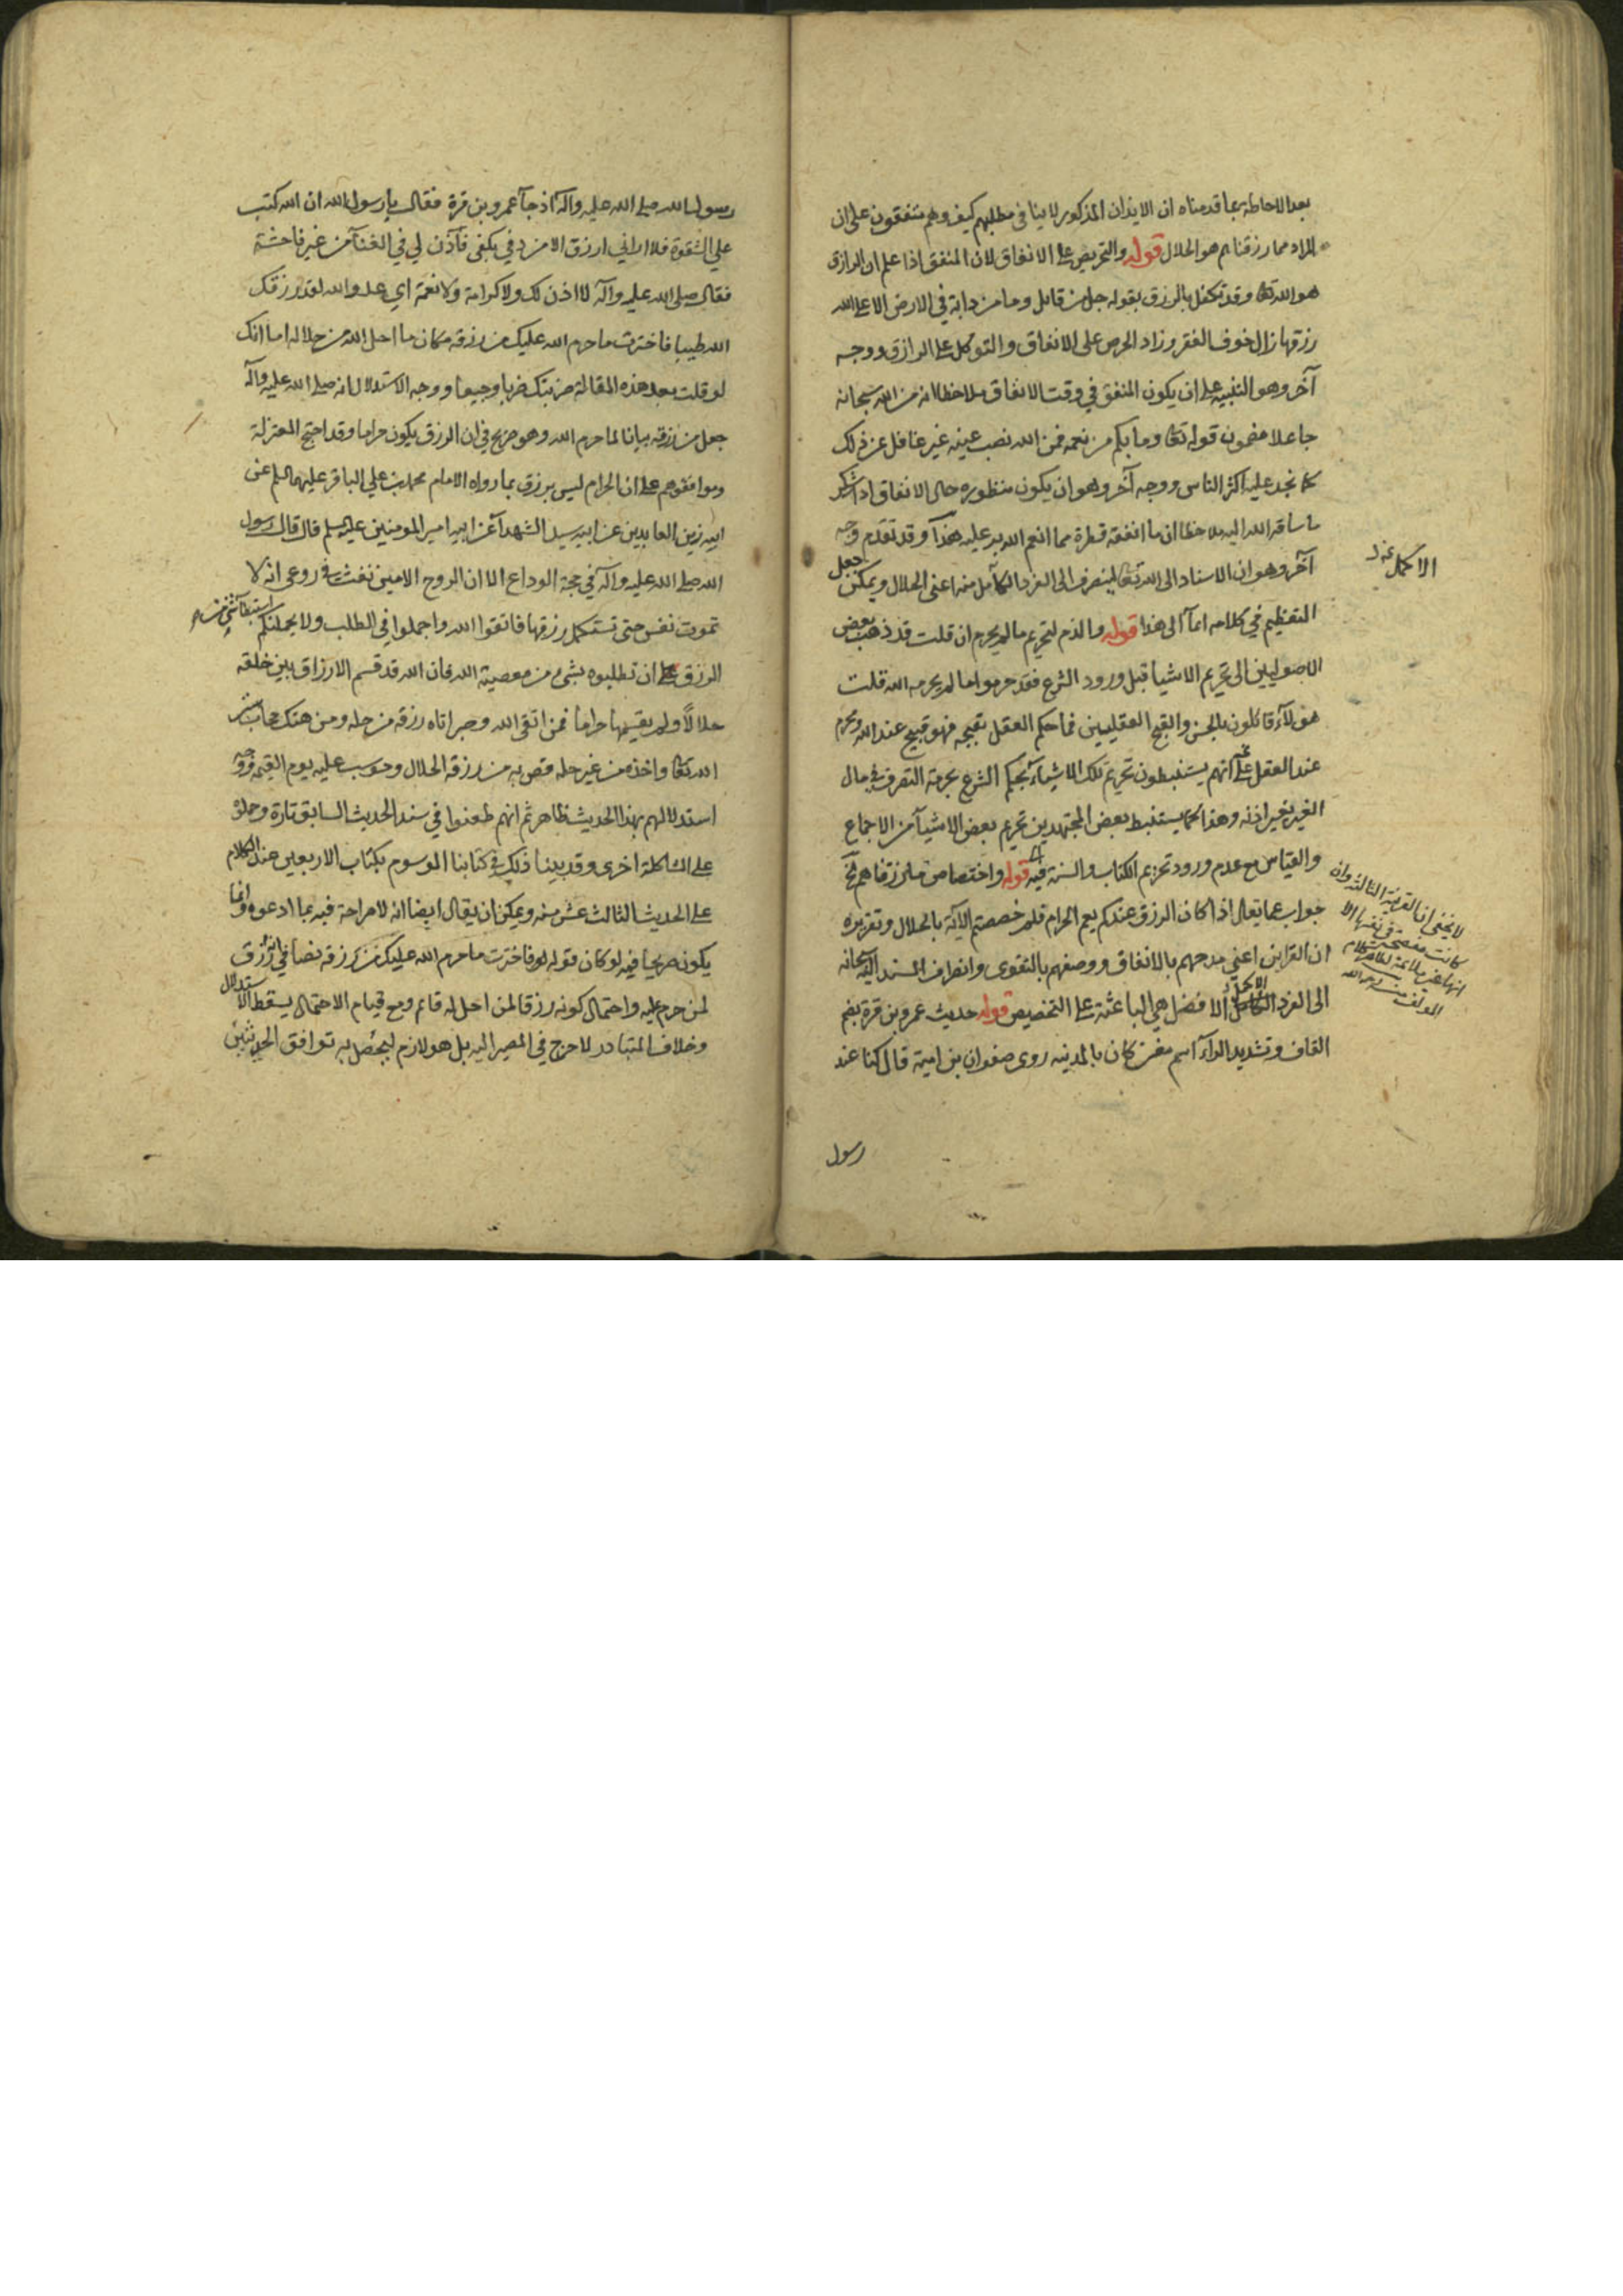 بعد الاحاطة بما قدمناه ان الايذان المذكور لا ينافى مطلبهم كيف وهم متفقون على ان
المراد مما رزقناهم هو الحلال قوله والتحريض على الانفاق لان المنفق اذا علم ان الرازق
هو الله تعا وقد تكفل بالرزق بقوله جل من قائل وما من دابة في الارض الا على الله
رزقها زال خوف الفقر وزاد الحرص على الانفاق والتوكل على الرازق ووجه
آخر وهو التنبيه على ان يكون المنفق في وقت الانفاق ملاحظا انه من الله سبحانه
جاعلا مضمون قوله تعا وما بكم من نعمه فمن الله نصب عينه غير غافل عن ذلك
كما نجد عليه اكثر الناس ووجه آخر وهو ان يكون منظوره حال الانفاق اداء شكر
ما ساقه الله اليه ملاحظا ان ما انفقه قطرة مما انعم الله به عليه هذا وقد تقدم وجه
آخر وهو ان الاسناد الى الله تعا لينصرف الى الفرد الكامل منه اعنى الحلال ويمكن جعل
الاكمل
التعظيم في كلامه ايمآ الى هذا قوله والذم لتحريم ما لم يحرم ان قلت قد ذهب بعض
الاصوليين الى تحريم الاشيا قبل ورود الشرع فقد حرموا ما لم يحرمه الله قلت
هؤلآء قائلون بالحسن والقبح العقليين فما حكم العقل بقبحه فهو قبيح عند الله ومحرم
عند العقل على انهم يستنبطون تحريم تلك الاشيآء بحكم الشرع بحرمة التصرف في مال
الغير بغير اذنه وهذا كما يستنبط بعض المجتهدين تحريم بعض الاشيآ من الاجماع
والقياس مع عدم ورود تحريم الكتاب والسنة فيه قوله واختصاص ما رزقناهم
جواب عما يقال اذا كان الرزق عندكم يعم الحرام فلم خصصتم الآية بالحلال وتقريره
ان القراين اعني مدحهم بالانفاق ووصفهم بالتقوى وانصراف المسند اليه سبحانه
الى الفرد الاكمل الافضل هي الباعثة على التخصيص قوله حديث عمرو بن قرة بضم
القاف وتشديد الرآء اسم مغن كان بالمدينه روى صفوان بن امية قال كنا عند
لا يخفى ان القرينة الثالثة وان
كانت صحيحة في نفسها الا
انها غير ملائمة لظاهر كلام
المؤلف رحمه الله
رسول
رسول الله صلى الله عليه وآله اذ جآء عمرو بن قرة فقال يا رسول الله ان الله كتب
علي الشقوة فلا اراني ارزق الا من دفي بكفى فآذن لي في الغنآ من غير فاحشة
فقال صلى الله عليه وآله لا اذن لك ولا كرامة ولا نعمة اي عدو الله لقد رزقك
الله طيبا فاخترت ما حرم الله عليك من رزقه مكان ما احل الله من حلاله اما انك
لو قلت بعد هذه المقالة ضربتك ضربا وجيعا ووجه الاستدلال انه صلى الله عليه وآله
جعل من رزقه بيانا لما حرم الله وهو صريح في ان الرزق يكون حراما وقد احتج المعتزلة
وموافقوهم على ان الحرام ليس برزق بما رواه الامام محمد بن علي الباقر عليهما السلم عن
ابيه زين العابدين عن ابيه سيد الشهدآء عن ابيه امير المومنين عليه السلم قال قال رسول
الله صلى الله عليه وآله في حجة الوداع الا ان الروح الامين نفث في روعى انه لا
تموت نفس حتى تستكمل رزقها فاتقوا الله واجملوا في الطلب ولا يحملنكم استبطآء شئ من
الرزق على ان تطلبوه بشئ من معصية الله فان الله قد قسم الارزاق بين خلقه
حلالاً ولم يقسمها حراماً فمن اتقى الله وصبر اتاه رزقه من حله ومن هتك حجاب ستر
الله تعا واخذه من غير حله قص به من رزقه الحلال وحوسب عليه يوم القيمه ووجه
استدلالهم بهذا الحديث ظاهر ثم انهم طعنوا في سند الحديث السابق تارة وحملوه
على المشاكلة اخرى وقد بينا ذلك في كتابنا الموسوم بكتاب الاربعين عند الكلام
على الحديث الثالث عشر منه ويمكن ان يقال ايضا انه لا صراحة فيه بما ادعوه وانما
يكون صريحاً فيه لو كان قوله فاخترت ما حرم الله عليك من رزقه نصا في الرزق
لمن حرم عليه واحتمال كونه رزقا لمن احل له قائم ومع قيام الاحتمال يسقط الاستدلال
وخلاف المتبادر لا حرج في المصير اليه بل هو لازم ليحصل به توافق الحديثين